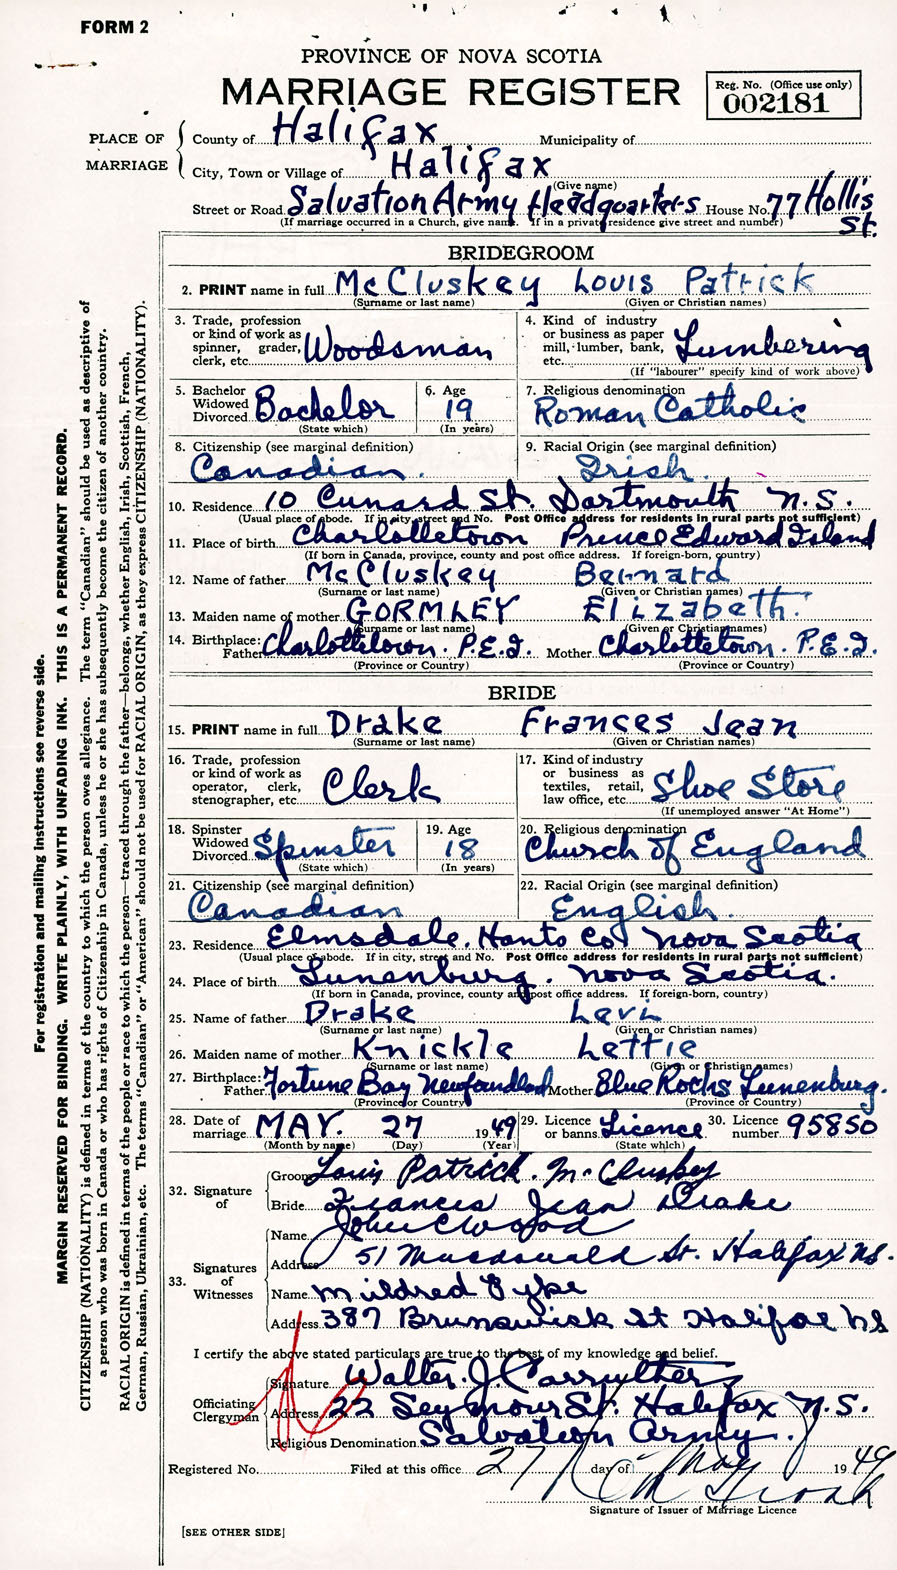 FORM 2
PROVINCE OF NOVA SCOTIA
MARRIAGE REGISTER
Reg. No. (Office use only)
002181
PLACE OF MARRIAGE
County of Halifax Municipality of
City, Town or Village of Halifax
(Give name)
Street or Road Salvation Army Headquarters House No. 77 Hollis St.
(If marriage occurred in a Church, give name. If in a private residence give street and number)
BRIDEGROOM
2. PRINT name in full McCluskey Louis Patrick
(Surname or last name) (Given or Christian names)
3. Trade, profession or kind of work as spinner, grader, clerk, etc. Woodsman
4. Kind of industry or business as paper mill, lumber, bank, etc. Lumbering
(If "labourer" specify kind of work above)
5. Bachelor Widowed Divorced Bachelor (State which)
6. Age 19 (In years)
7. Religious denomination Roman Catholic
8. Citizenship (see marginal definition) Canadian.
9. Racial Origin (see marginal definition) Irish.
10. Residence 10 Cunard St. Dartmouth N.S.
(Usual place of abode. If in city, street and No. Post Office address for residents in rural parts not sufficient)
11. Place of birth Charlottetown Prince Edward Island
(If born in Canada, province, county and post office address. If foreign-born, country)
12. Name of father McCluskey Bernard
(Surname or last name) (Given or Christian names)
13. Maiden name of mother GORMLEY Elizabeth.
(Surname or last name) (Given or Christian names)
14. Birthplace: Father Charlottetown. P.E.I. Mother Charlottetown. P.E.I.
(Province or Country) (Province or Country)
BRIDE
15. PRINT name in full Drake Frances Jean
(Surname or last name) (Given or Christian names)
16. Trade, profession or kind of work as operator, clerk, stenographer, etc. Clerk
17. Kind of industry or business as textiles, retail, law office, etc. Shoe Store
(If unemployed answer "At Home")
18. Spinster Widowed Divorced Spinster (State which)
19. Age 18 (In years)
20. Religious denomination Church of England
21. Citizenship (see marginal definition) Canadian
22. Racial Origin (see marginal definition) English.
23. Residence Elmsdale. Hants Co. Nova Scotia
(Usual place of abode. If in city, street and No. Post Office address for residents in rural parts not sufficient)
24. Place of birth Lunenburg. Nova Scotia.
(If born in Canada, province, county and post office address. If foreign-born, country)
25. Name of father Drake Levi
(Surname or last name) (Given or Christian names)
26. Maiden name of mother Knickle Lettie
(Surname or last name) (Given or Christian names)
27. Birthplace: Father Fortune Bay Newfoundland Mother Blue Rocks Lunenburg.
(Province or Country) (Province or Country)
28. Date of marriage MAY. 27 1949
(Month by name) (Day) (Year)
29. Licence or banns Licence (State which)
30. Licence number 95850
32. Signature of
Groom Louis Patrick. McCluskey
Bride Frances Jean Drake
33. Signatures of Witnesses
Name John C Wood
Address 51 Macdonald St. Halifax N.S.
Name Mildred Pyke
Address 387 Brunswick St Halifax NS
I certify the above stated particulars are true to the best of my knowledge and belief.
Officiating Clergyman
Signature Walter. J. Carruthers
Address 22 Seymour St. Halifax N.S.
Religious Denomination Salvation Army.
Registered No. Filed at this office 27 day of May 1949
Signature of Issuer of Marriage Licence
[SEE OTHER SIDE]
For registration and mailing instructions see reverse side.
MARGIN RESERVED FOR BINDING. WRITE PLAINLY, WITH UNFADING INK. THIS IS A PERMANENT RECORD.
CITIZENSHIP (NATIONALITY) is defined in terms of the country to which the person owes allegiance. The term "Canadian" should be used as descriptive of
a person who was born in Canada or who has rights of Citizenship in Canada, unless he or she has subsequently become the citizen of another country.
RACIAL ORIGIN is defined in terms of the people or race to which the person—traced through the father—belongs, whether English, Irish, Scottish, French,
German, Russian, Ukrainian, etc. The terms "Canadian" or "American" should not be used for RACIAL ORIGIN, as they express CITIZENSHIP (NATIONALITY).